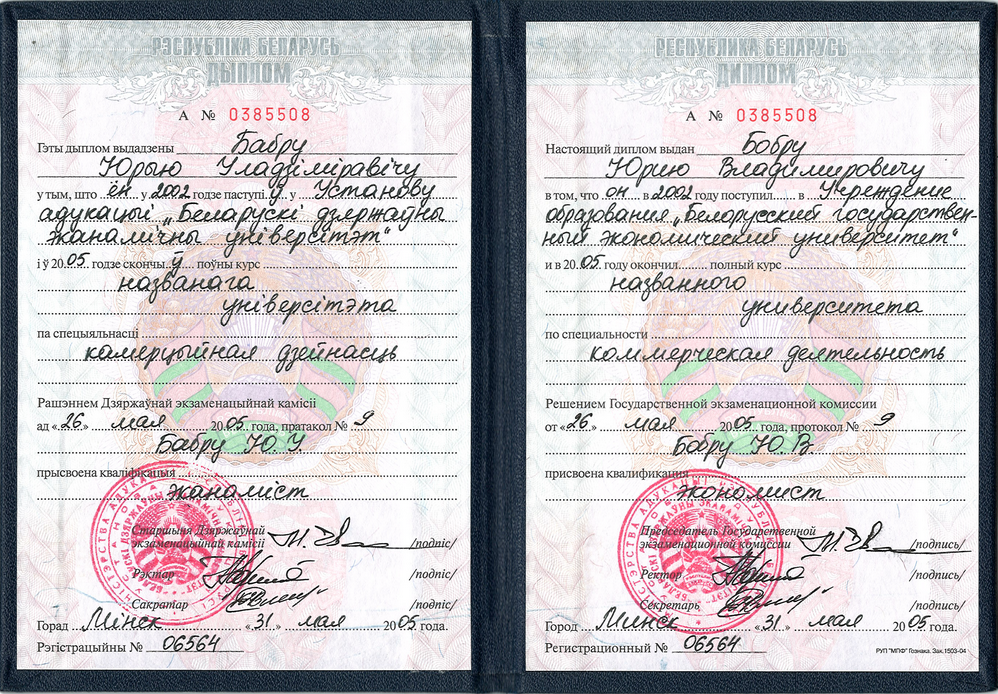 РЭСПУБЛІКА БЕЛАРУСЬ
ДЫПЛОМ
А № 0385508
Гэты дыплом выдадзены Бабру
Юрыю Уладзіміравічу
у тым, што ён у 2002 годзе паступіў у Установу
адукацыі „Беларускі дзяржаўны
эканамічны універсітэт“
і ў 2005 годзе скончыў поўны курс
названага
універсітэта
па спецыяльнасці
камерцыйная дзейнасць
Рашэннем Дзяржаўнай экзаменацыйнай камісіі
ад «26» мая 2005 года, пратакол № 9
Бабру Ю. У.
прысвоена кваліфікацыя
эканаміст
Старшыня Дзяржаўнай
экзаменацыйнай камісіі /подпіс/
Рэктар /подпіс/
Сакратар /подпіс/
Горад Мінск «31» мая 2005 года.
Рэгістрацыйны № 06564
РЕСПУБЛИКА БЕЛАРУСЬ
ДИПЛОМ
А № 0385508
Настоящий диплом выдан Бобру
Юрию Владимировичу
в том, что он в 2002 году поступил в Учреждение
образования „Белорусский государствен-
ный экономический университет“
и в 2005 году окончил полный курс
названного
университета
по специальности
коммерческая деятельность
Решением Государственной экзаменационной комиссии
от «26» мая 2005 года, протокол № 9
Бобру Ю. В.
присвоена квалификация
экономист
Председатель Государственной
экзаменационной комиссии /подпись/
Ректор /подпись/
Секретарь /подпись/
Город Минск «31» мая 2005 года.
Регистрационный № 06564
РУП "МПФ" Гознака. Зак.1503-04